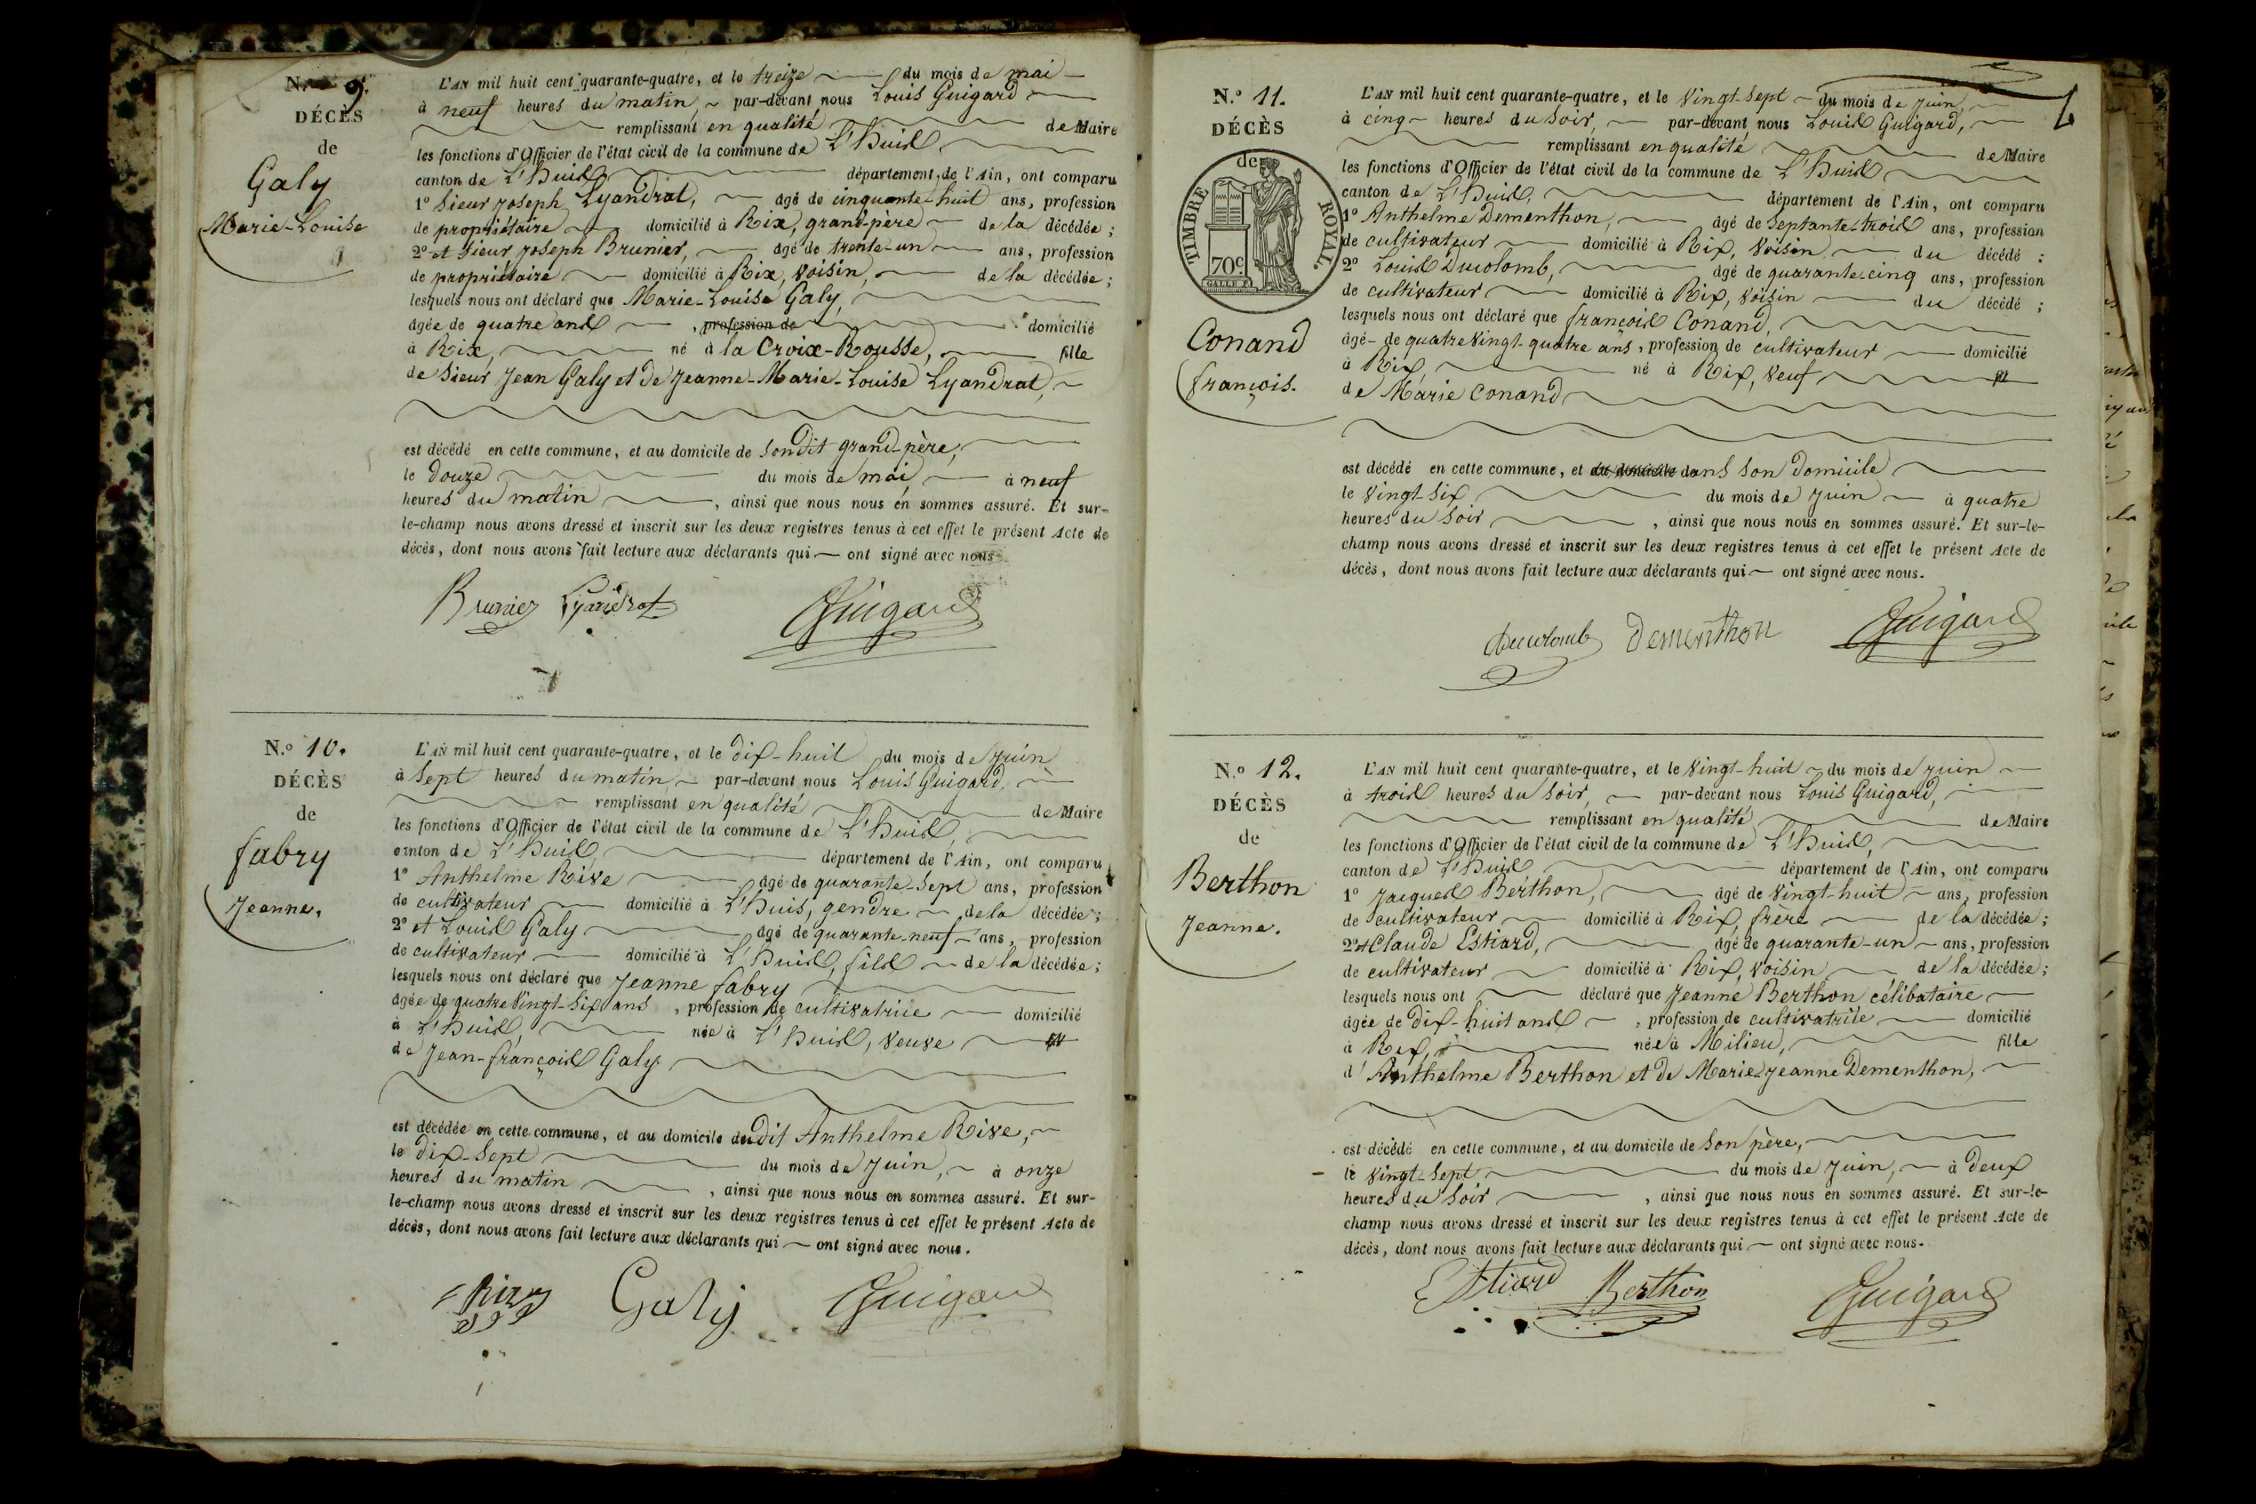 N.° 9.
DÉCÈS
de
Galy
Marie-Louise
L'AN mil huit cent quarante-quatre, et le treize du mois de mai
à neuf heures du matin, par-devant nous Louis Guigard
remplissant en qualité de Maire
les fonctions d'Officier de l'état civil de la commune de L'huis
canton de L'huis département de l'Ain, ont comparu
1° Sieur Joseph Lyandrat, âgé de cinquante-huit ans, profession
de propriétaire domicilié à Rix, grand-père de la décédée;
2° et Sieur Joseph Brunier, âgé de trente-un ans, profession
de propriétaire domicilié à Rix, voisin, de la décédée;
lesquels nous ont déclaré que Marie-Louise Galy,
âgée de quatre ans , profession de domicilié
à Rix, né à la Croix-Rousse, fille
de Sieur Jean Galy et de Jeanne-Marie-Louise Lyandrat,
est décédé en cette commune, et au domicile de Sondit grand-père,
le douze du mois de mai à neuf
heures du matin , ainsi que nous nous en sommes assuré. Et sur-
le-champ nous avons dressé et inscrit sur les deux registres tenus à cet effet le présent Acte de
décès, dont nous avons fait lecture aux déclarants qui ont signé avec nous
Brunier Lyandrat Guigard
N.° 10.
DÉCÈS
de
fabry
Jeanne.
L'AN mil huit cent quarante-quatre, et le dix-huit du mois de juin
à sept heures du matin, par-devant nous Louis Guigard,
remplissant en qualité de Maire
les fonctions d'Officier de l'état civil de la commune de L'huis,
canton de L'huis, département de l'Ain, ont comparu
1° Anthelme Rive âgé de quarante-sept ans, profession
de cultivateur domicilié à L'huis, gendre de la décédée;
2° et Louis Galy âgé de quarante-neuf ans, profession
de cultivateur domicilié à L'huis, fils de la décédée;
lesquels nous ont déclaré que Jeanne fabry
âgée de quatre vingt-six ans , profession de cultivatrice domicilié
à L'huis, née à L'huis, veuve
de Jean-françois Galy
est décédée en cette commune, et au domicile dudit Anthelme Rive,
le dix-sept du mois de juin, à onze
heures du matin , ainsi que nous nous en sommes assuré. Et sur-
le-champ nous avons dressé et inscrit sur les deux registres tenus à cet effet le présent Acte de
décès, dont nous avons fait lecture aux déclarants qui ont signé avec nous.
Galy Guigard
N.° 11.
DÉCÈS
de
TIMBRE ROYAL.
70c
Conand
françois.
L'AN mil huit cent quarante-quatre, et le vingt-sept du mois de juin
à cinq heures du soir, par-devant nous Louis Guigard,
remplissant en qualité de Maire
les fonctions d'Officier de l'état civil de la commune de L'huis
canton de L'huis, département de l'Ain, ont comparu
1° Anthelme Dementhon, âgé de septante-trois ans, profession
de cultivateur domicilié à Rix, voisin du décédé ;
2° Louis Ducolomb, âgé de quarante-cinq ans, profession
de cultivateur domicilié à Rix, voisin du décédé ;
lesquels nous ont déclaré que françois Conand,
âgé de quatre vingt-quatre ans, profession de cultivateur domicilié
à Rix, né à Rix, veuf
de Marie Conand
est décédé en cette commune, et au domicile dans son domicile
le vingt-six du mois de juin à quatre
heures du soir , ainsi que nous nous en sommes assuré. Et sur-le-
champ nous avons dressé et inscrit sur les deux registres tenus à cet effet le présent Acte de
décès, dont nous avons fait lecture aux déclarants qui ont signé avec nous.
Ducolomb Dementhon Guigard
N.° 12.
DÉCÈS
de
Berthon
Jeanne.
L'AN mil huit cent quarante-quatre, et le vingt-huit du mois de juin
à trois heures du soir, par-devant nous Louis Guigard,
remplissant en qualité de Maire
les fonctions d'Officier de l'état civil de la commune de L'huis,
canton de L'huis département de l'Ain, ont comparu
1° Jacques Berthon, âgé de vingt-huit ans, profession
de cultivateur domicilié à Rix, frère de la décédée;
2° et Claude Estiard, âgé de quarante-un ans, profession
de cultivateur domicilié à Rix, voisin de la décédée;
lesquels nous ont déclaré que Jeanne Berthon célibataire
âgée de dix-huit ans , profession de cultivatrice domicilié
à Rix, née à Milieu, fille
d'Anthelme Berthon et de Marie-Jeanne Dementhon,
est décédé en cette commune, et au domicile de son père,
le vingt-sept du mois de juin, à deux
heures du soir , ainsi que nous nous en sommes assuré. Et sur-le-
champ nous avons dressé et inscrit sur les deux registres tenus à cet effet le présent Acte de
décès, dont nous avons fait lecture aux déclarants qui ont signé avec nous.
Estiard Berthon Guigard